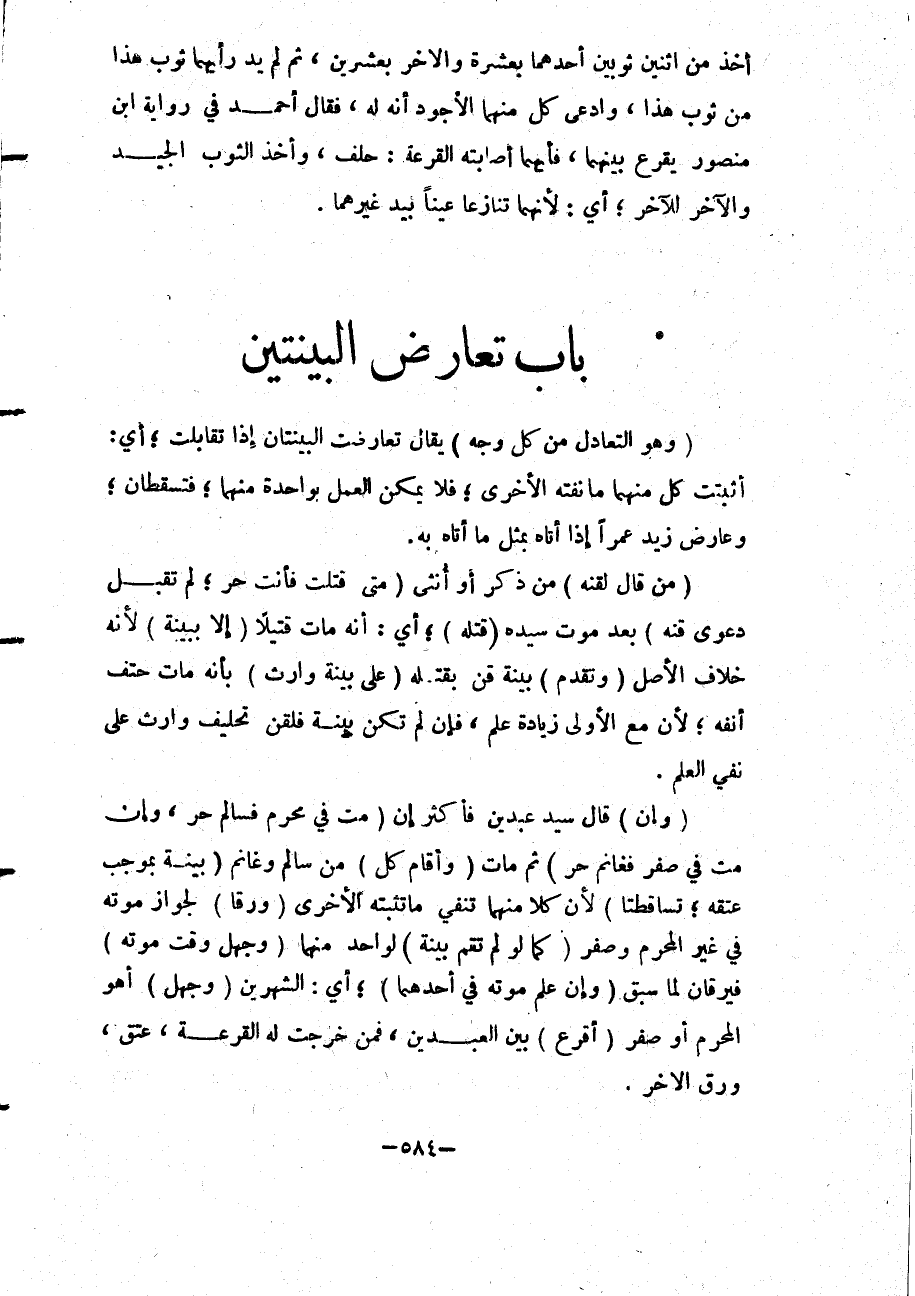 أخذ من اثنين ثوبين أحدهما بعشرة والاخر بعشرين ، ثم لم يد رأيهما ثوب هذا
من ثوب هذا ، وادعى كل منهما الأجود أنه له ، فقال أحمد في رواية ابن
منصور يقرع بينهما ، فأيهما أصابته القرعة : حلف ، وأخذ الثوب الجيد
والآخر للآخر ؛ أي : لأنهما تنازعا عيناً بيد غيرهما .
باب تعارض البينتين
( وهو التعادل من كل وجه ) يقال تعارضت البينتان إذا تقابلت ؛ أي :
أثبتت كل منهما مانفته الأخرى ؛ فلا يمكن العمل بواحدة منهما ؛ فتسقطان ؛
وعارض زيد عمراً إذا أتاه بمثل ما أتاه به.
( من قال لقنه ) من ذكر أو أُنثى ( متى قتلت فأنت حر ؛ لم تقبل
دعوى قنه ) بعد موت سيده (قتله ) ؛ أي : أنه مات قتيلًا ( إلا ببينة ) لأنه
خلاف الأصل ( وتقدم ) بينة قن بقتله ( على بينة وارث ) بأنه مات حتف
أنفه ؛ لأن مع الأولى زيادة علم ، فإن لم تكن بينة فلقن تحليف وارث على
نفي العلم .
( وان ) قال سيد عبدين فأكثر إن ( مت في محرم فسالم حر ، وإن
مت في صفر فغانم حر ) ثم مات ( وأقام كل ) من سالم وغانم ( بينة بموجب
عتقه ؛ تساقطتا ) لأن كلا منهما تنفي ماتثبته الأخرى ( ورقا ) لجواز موته
في غير المحرم وصفر ( كما لو لم تقم بينة ) لواحد منهما ( وجهل وقت موته )
فيرقان لما سبق ( وإن علم موته في أحدهما ) ؛ أي : الشهرين ( وجهل ) أهو
المحرم أو صفر ( أقرع ) بين العبدين ، فمن خرجت له القرعة ، عتق ،
ورق الاخر .
—٥٨٤—